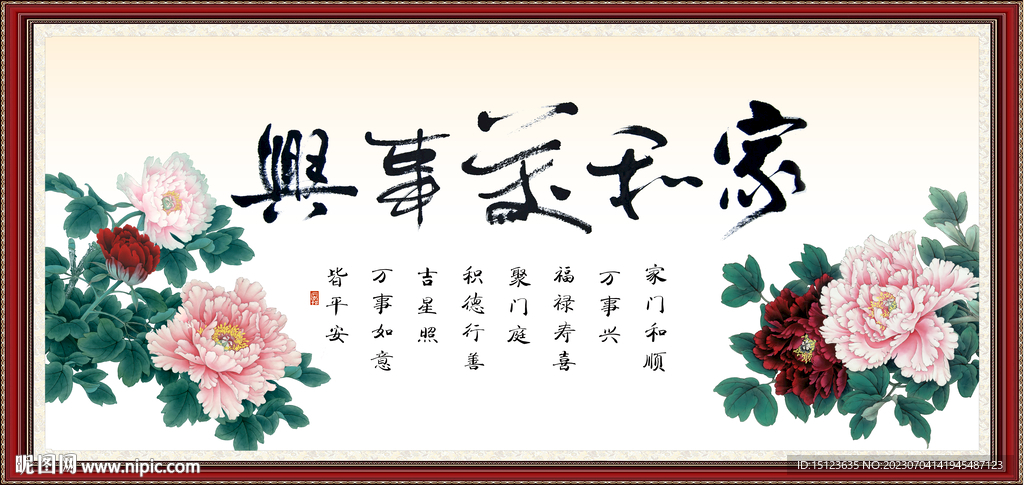 家和萬事興
家门和顺
万事兴
福禄寿喜
聚门庭
积德行善
吉星照
万事如意
皆平安
昵图网 www.nipic.com
ID:15123635 NO:20230704141945487123